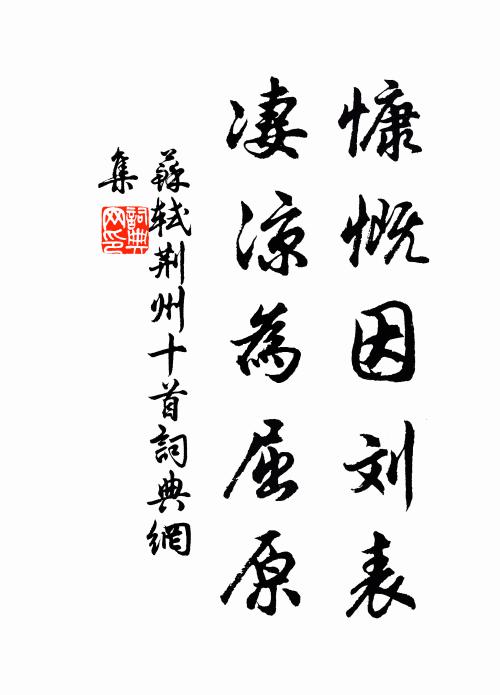 慷慨因刘表
凄凉為屈原
蘇軾荆州十首詞典網
集
詞典
网印